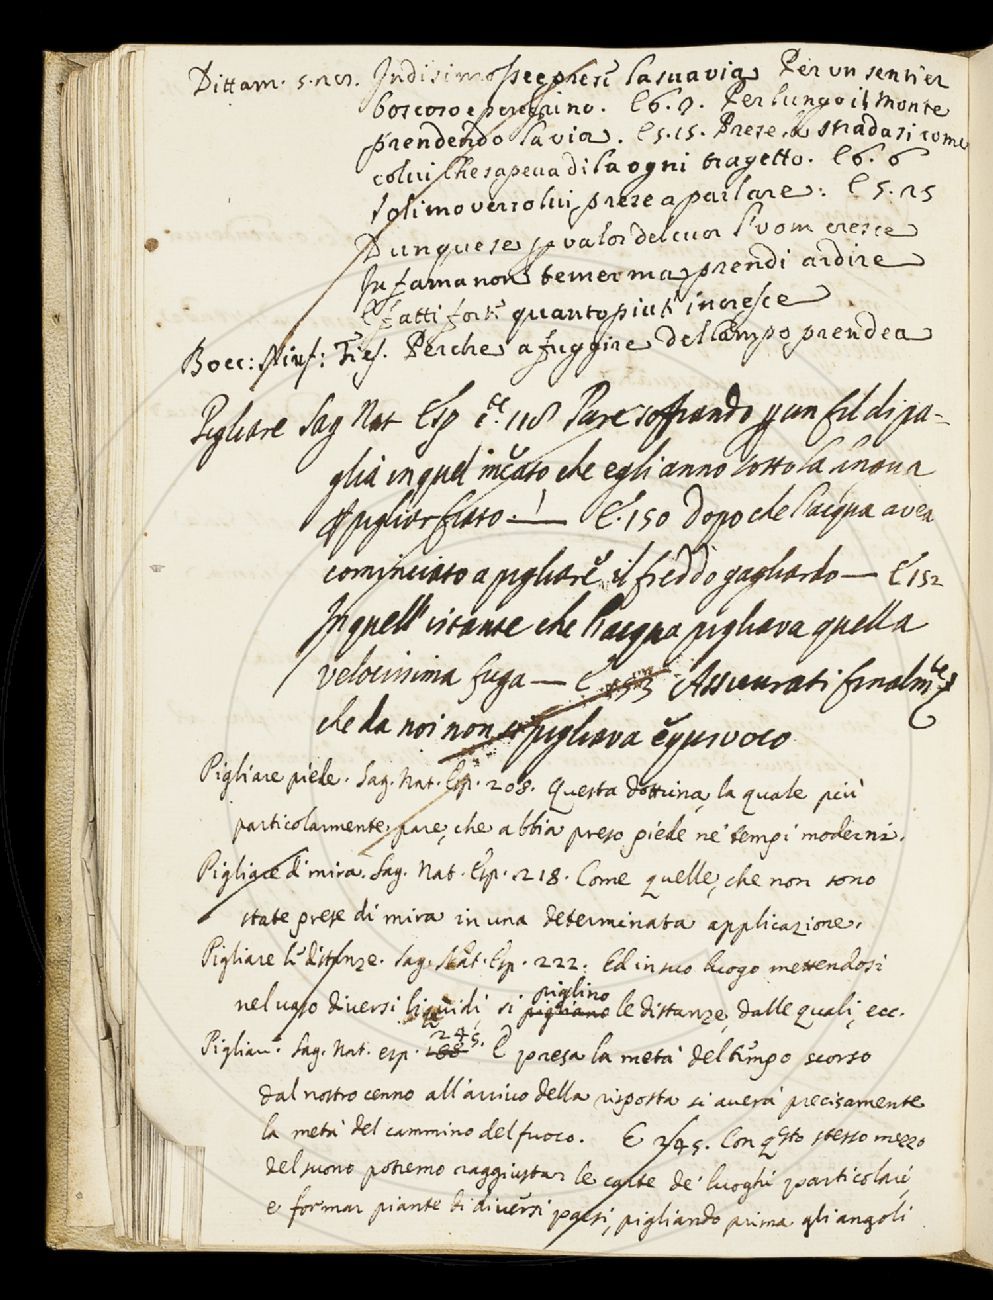 Dittam. 5. 21. Indi si mosse e prese la sua via Per un sentier
boscoso e peregrino. E 6. 9. Per lungo il Monte
prendendo la via. E 5. 15. Prese la strada si come
colui Che sapeva di la ogni tragetto. E 6. 6
Solimo verso lui prese a parlare. E 5. 25
Dunque se p valor del cuor l'uom cresce
In fama non temer ma prendi ardire
E fatti forte quanto piu t'incresce
Bocc: Ninf: Fies. Perche a fuggire del campo prendea
Pigliare Sag Nat Esp c. 118 Pare soffiando p un fil di pa-
glia in quel mentre che egli anno sotto la
p pigliar fiato. — E 150 Dopo che l'acqua avea
cominciato a pigliare il freddo gagliardo — E 152
In quell' istante che l'acqua pigliava quella
velocissima fuga — E 153 Assicurati finalmte
che da noi non si pigliava equivoco
Pigliare piede. Sag. Nat. Esp. 208. Questa dottrina, la quale più
particolarmente pare, che abbia preso piede ne' tempi moderni.
Pigliare di mira. Sag. Nat. Esp. 218. Come quelle, che non sono
state prese di mira in una determinata applicazione.
Pigliare le distanze. Sag. Nat. Esp. 222. Ed in suo luogo mettendosi
nel vaso diversi liquidi si pigliano piglino le distanze, dalle quali, ecc.
Pigliare. Sag. Nat. esp. 245. E presa la metà del tempo scorso
dal nostro cenno all'arrivo della risposta si averà precisamente
la metà del cammino del fuoco. E 245. Con qsto stesso mezzo
del suono potremo raggiustar le carte de' luoghi particolari,
e formar piante di diversi paesi, pigliando prima gli angoli